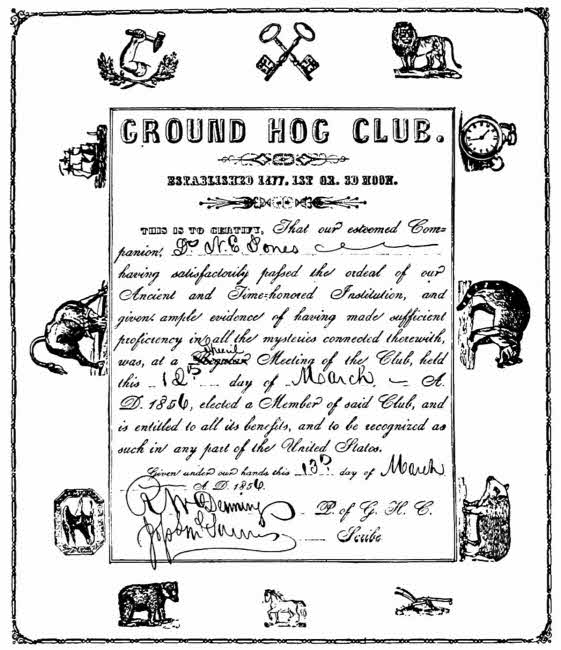 GROUND HOG CLUB.
ESTABLISHED 1477. 1ST QR. 3D MOON.
THIS IS TO CERTIFY, That our esteemed Com-
panion, Dr N. E. Jones
having satisfactorily passed the ordeal of our
Ancient and Time-honored Institution, and
given ample evidence of having made sufficient
proficiency in all the mysteries connected therewith,
was, at a Meeting of the Club, held
this 12th day of March A.
D. 1856, elected a Member of said Club, and
is entitled to all its benefits, and to be recognized as
such in any part of the United States.
Given under our hands this 13th day of March
A. D. 1856.
P. of G. H. C.
Scribe